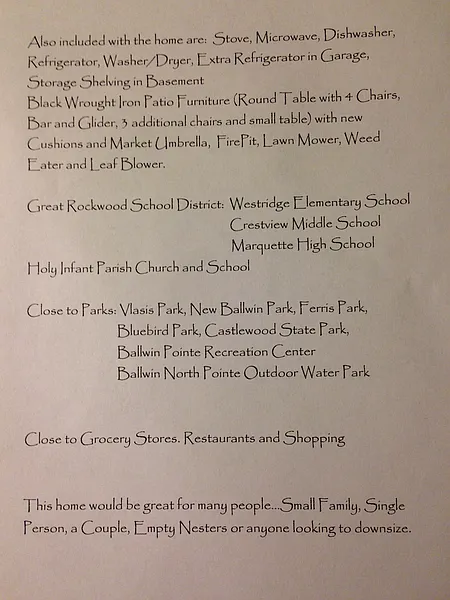 Also included with the home are: Stove, Microwave, Dishwasher,
Refrigerator, Washer/Dryer, Extra Refrigerator in Garage,
Storage Shelving in Basement
Black Wrought Iron Patio Furniture (Round Table with 4 Chairs,
Bar and Glider, 3 additional chairs and small table) with new
Cushions and Market Umbrella, FirePit, Lawn Mower, Weed
Eater and Leaf Blower.
Great Rockwood School District: Westridge Elementary School
Crestview Middle School
Marquette High School
Holy Infant Parish Church and School
Close to Parks: Vlasis Park, New Ballwin Park, Ferris Park,
Bluebird Park, Castlewood State Park,
Ballwin Pointe Recreation Center
Ballwin North Pointe Outdoor Water Park
Close to Grocery Stores. Restaurants and Shopping
This home would be great for many people...Small Family, Single
Person, a Couple, Empty Nesters or anyone looking to downsize.